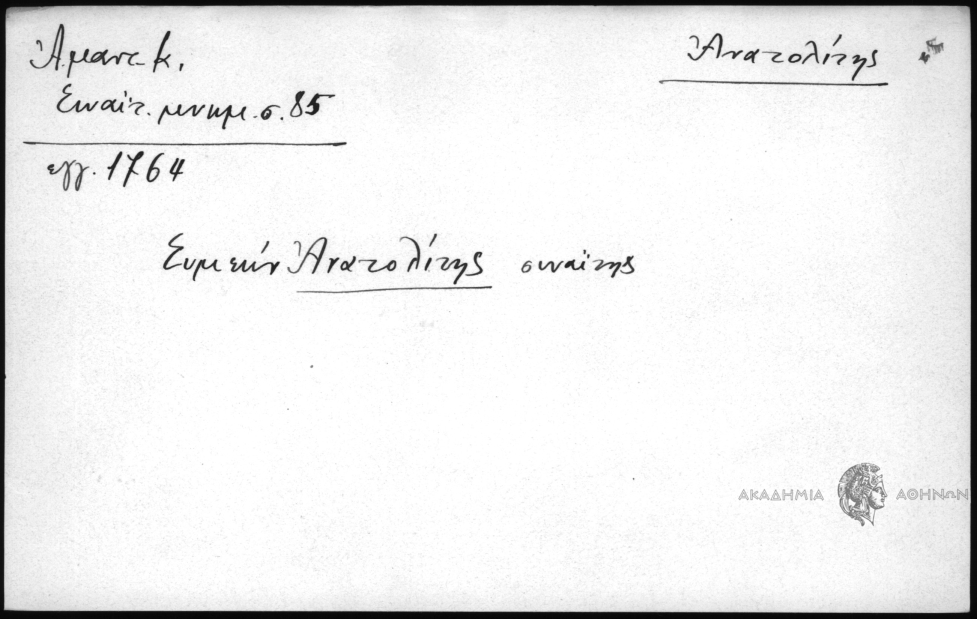 Ἀνατολίτης
Ἄμαντ. Κ.
Σιναϊτ. μνημ. σ. 85
εγγ. 1764
Συμεών Ἀνατολίτης σιναΐτης
ΑΚΑΔΗΜΙΑ ΑΘΗΝΩΝ